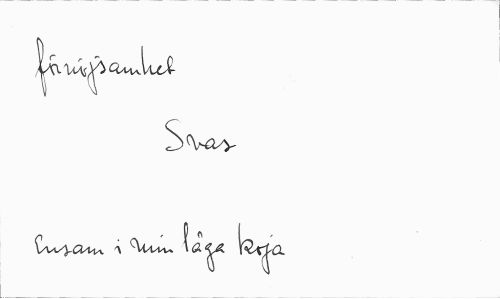 förnöjsamhet
Svas
Ensam i min låga koja